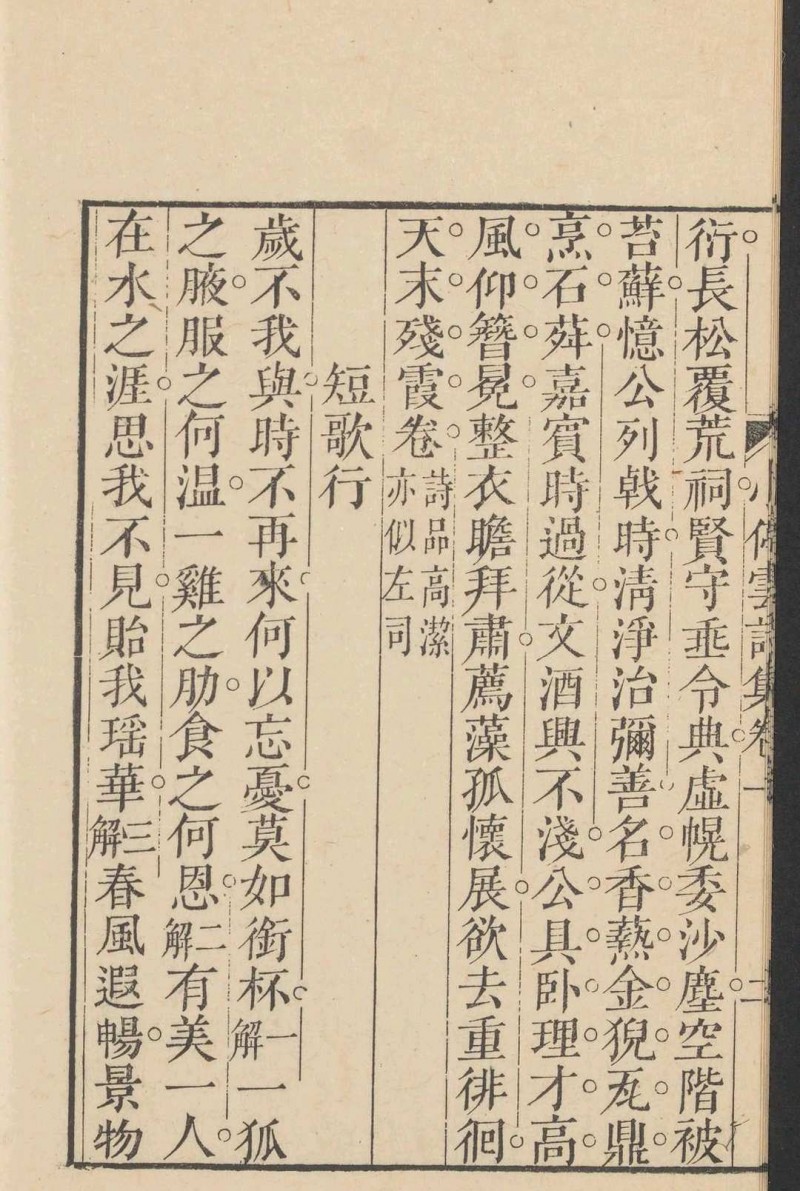 衍長松覆荒祠賢守垂令典虛幌委沙塵空階被
苔蘚憶公列戟時淸淨治彌善名香爇金猊瓦鼎
烹石荈嘉賓時過從文酒興不淺公具卧理才高
風仰簪冕整衣瞻拜肅薦藻孤懷展欲去重徘徊
天末殘霞卷詩品高潔
亦似左司
短歌行
歲不我與時不再來何以忘憂莫如銜杯一解一狐
之腋服之何温一雞之肋食之何恩二解有美一人
在水之涯思我不見貽我瑶華三解春風遐暢景物